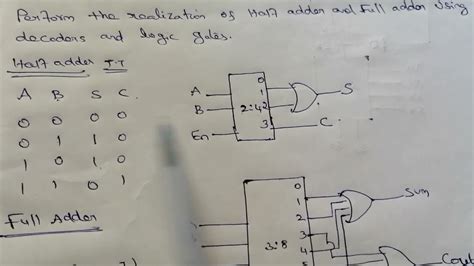 Perform the realization of Half adder and Full adder using
decoders and logic gates.
Half adder T.T
A B S C
0 0 0 0
0 1 1 0
1 0 1 0
1 1 0 1
A
B
En
2:4
0
1
2
3
S
C
Full Adder
3:8
0
1
2
3
4
Sum